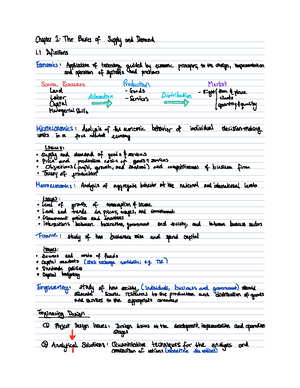 Chapter 1: The Basics of Supply and Demand
1.1 Definitions
Economics: Application of technology guided by economic principles, to the design, implementation
and operation of systems and processes
Scarce Resources Production Market
Land - Goods
Labor Allocation - Services Distribution
Capital
Managerial Skills quantity & quality
Microeconomics: Analysis of the economic behavior of individual decision-making
units in a free market economy
Issues:
• Supply and demand of goods & services
• Price and production costs of goods & services
• Objectives (profit, growth, and survival) and competitiveness of business firm
• Theory of production
Macroeconomics: Analysis of aggregate behavior at the national and international levels
Issues:
• Level of growth of consumption & income
• Level and trends in prices, wages, and employment
• Government policies and
• Interactions between business, government and society, and between business sectors
• Finance: study of how business raise and spend capital
Issues:
• Sources and costs of funds
• Capital markets (stock exchange
• Dividends policies
• Capital budgeting
Engineering: study of how society (individuals, business and government) should
allocate scarce resources to the production and distribution of goods
and services to the appropriate
Engineering Design
① Project Design Issues: Design issues at the development, implementation and operation
stages
② Analytical Solutions: Quantitative techniques for the analysis and